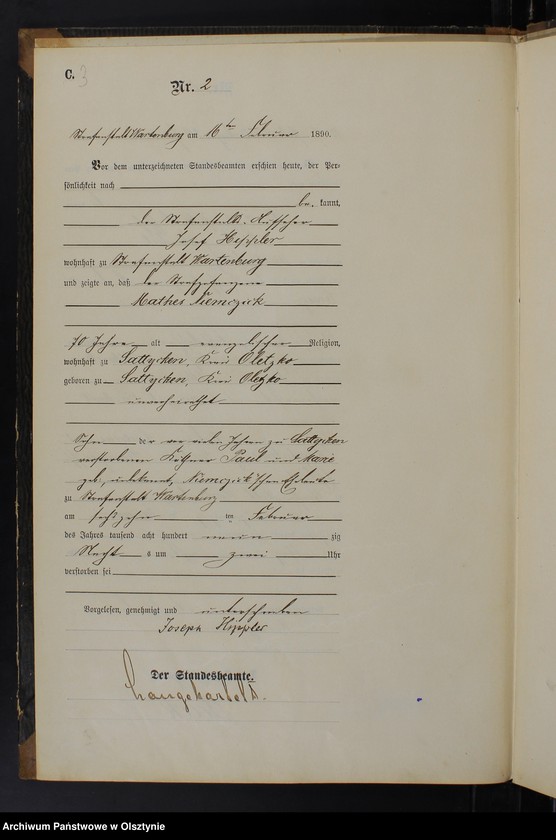 C. 3
Nr. 2
Strafanstalt Wartenburg am 16ten Februar 1890.
Vor dem unterzeichneten Standesbeamten erschien heute, der Per-
sönlichkeit nach
be kannt,
der Strafanstalts-Aufseher
Josef Hippler
wohnhaft zu Strafanstalt Wartenburg
und zeigte an, daß der Strafgefangene
Mathes Niemczick
70 Jahre alt evangelischer Religion,
wohnhaft zu Sattycken, Kreis Oletzko
geboren zu Sattycken, Kreis Oletzko
unverheirathet
Sohn der vor vielen Jahren zu Sattycken
verstorbenen Käthner Paul und Marie
geb. unbekannt, Niemczick'schen Eheleute
zu Strafanstalt Wartenburg
am sechszehn ten Februar
des Jahres tausend acht hundert neun zig
Nacht s um zwei Uhr
verstorben sei
Vorgelesen, genehmigt und unterschrieben
Joseph Hippler
Der Standesbeamte.
Archiwum Państwowe w Olsztynie